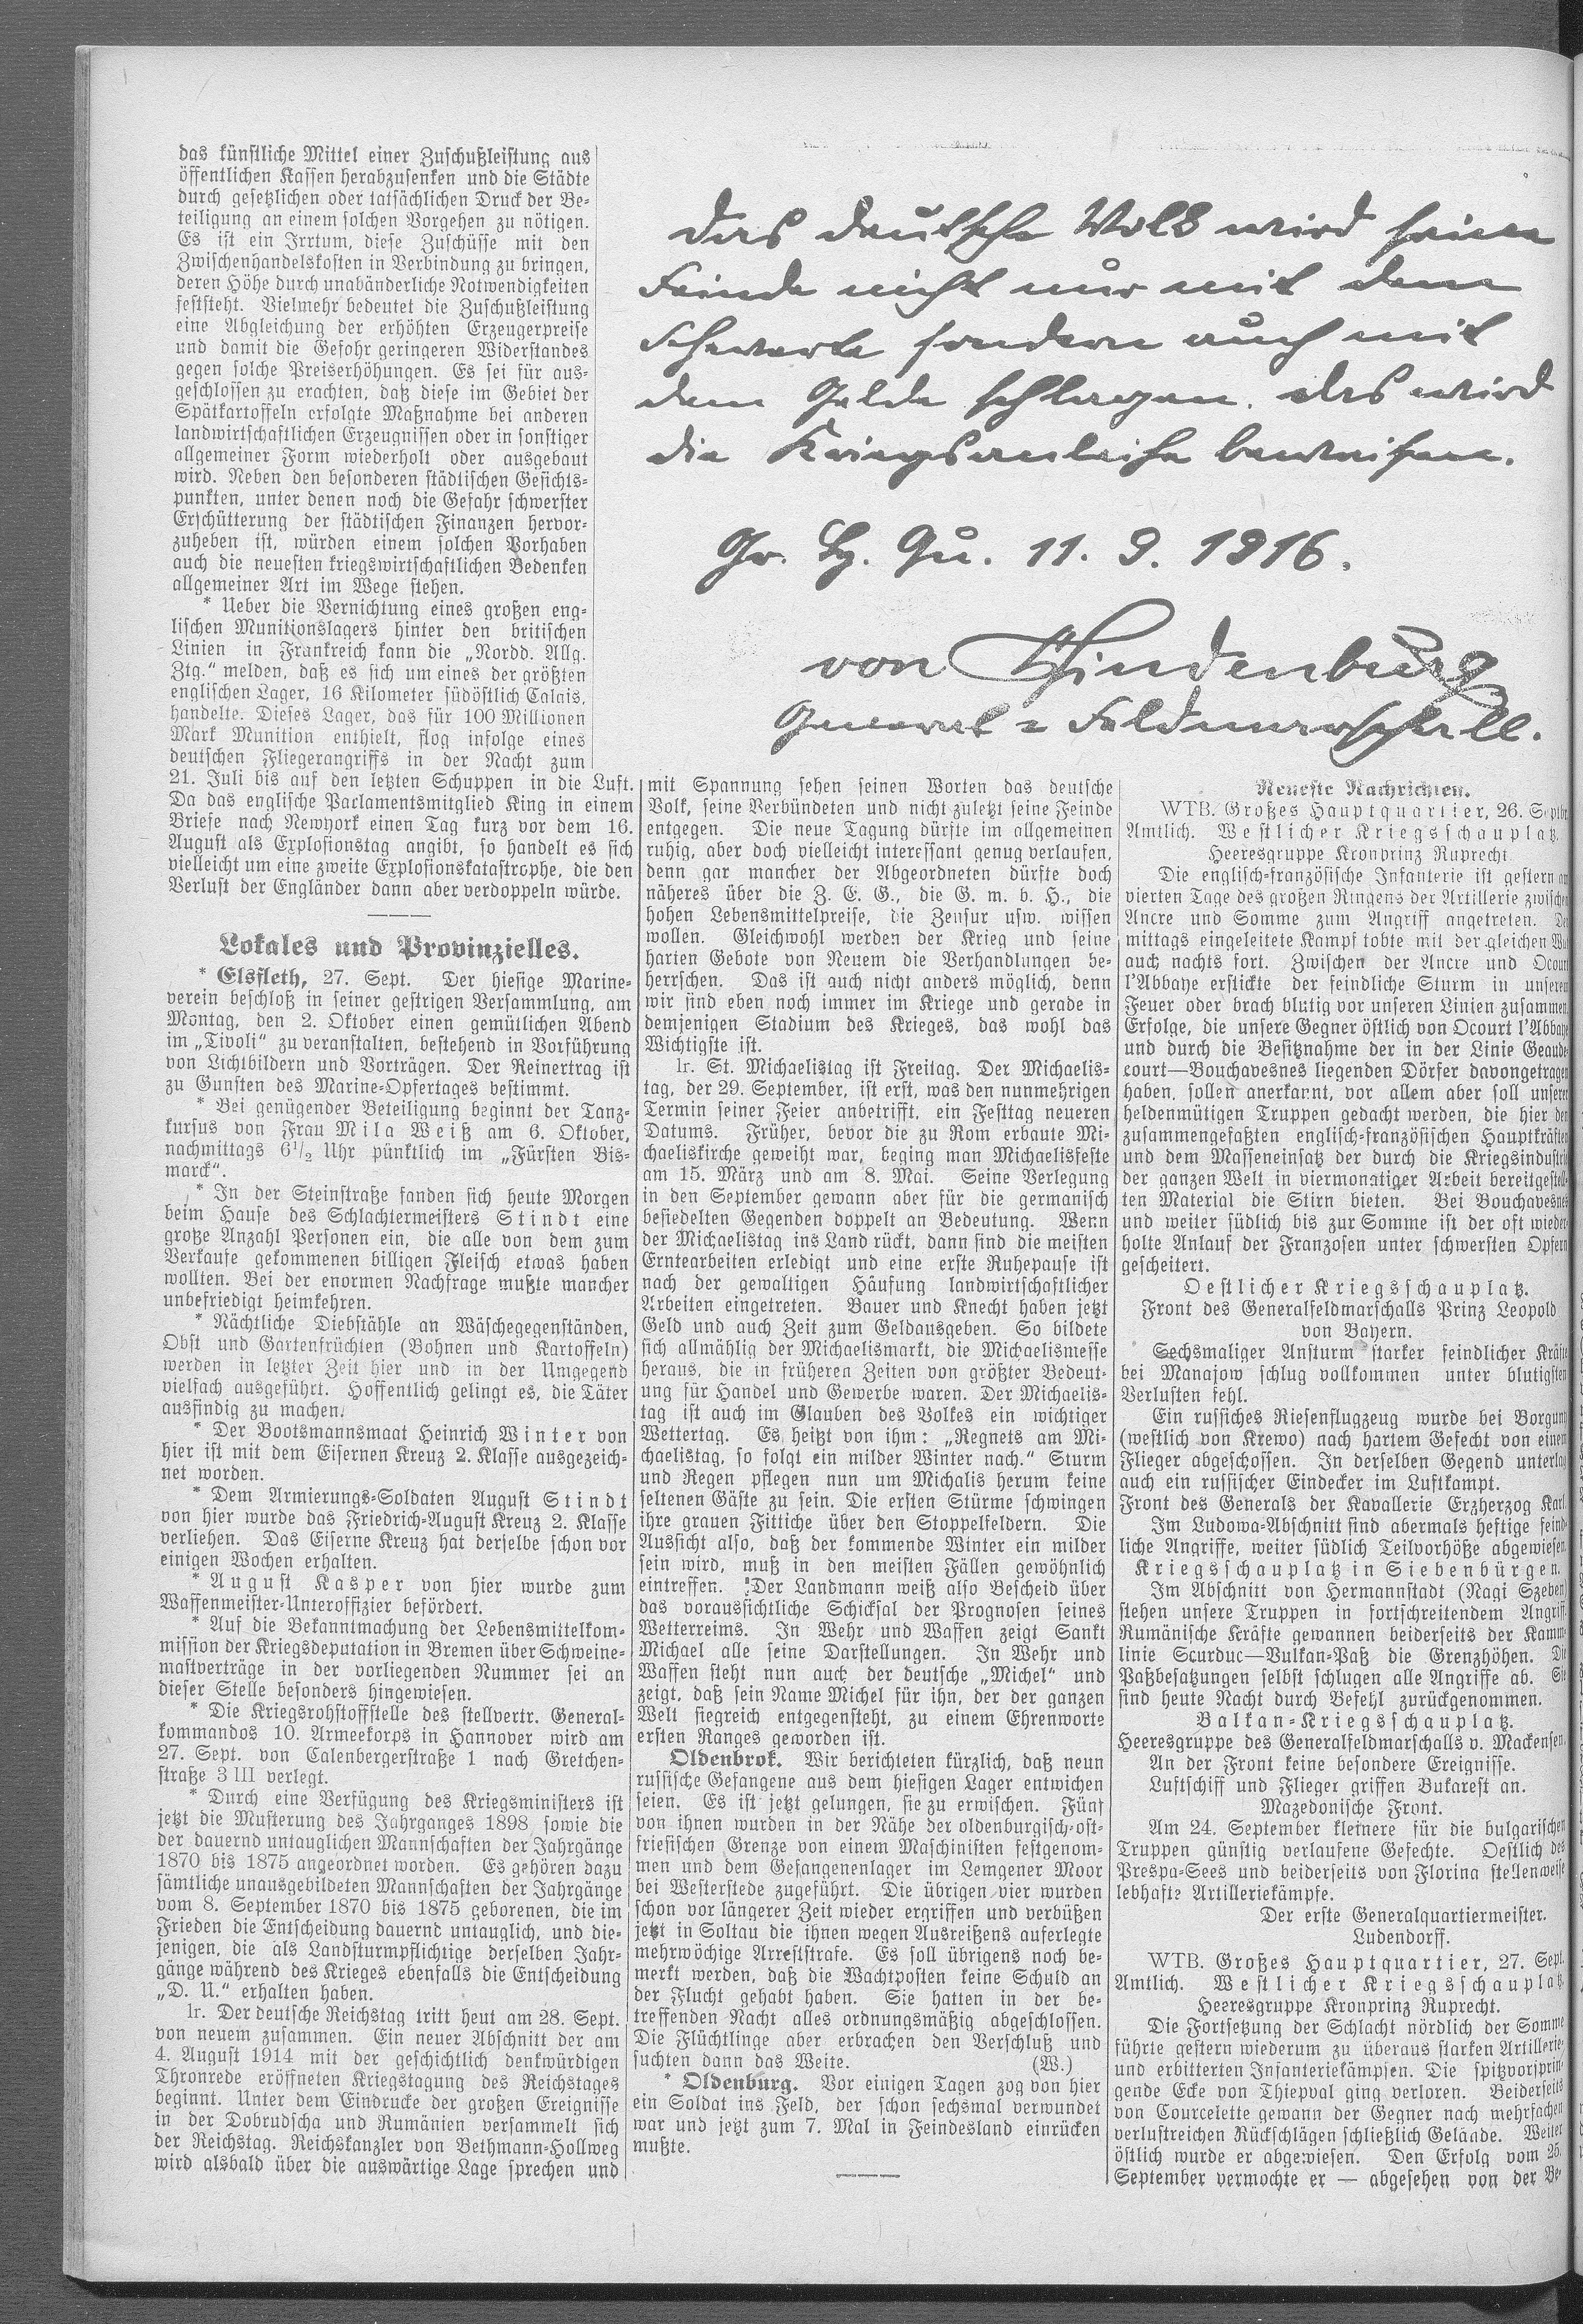 das künstliche Mittel einer Zuschußleistung aus
öffentlichen Kassen herabzusenken und die Städte
durch gesetzlichen oder tatsächlichen Druck der Be-
teiligung an einem solchen Vorgehen zu nötigen.
Es ist ein Irrtum, diese Zuschüsse mit den
Zwischenhandelskosten in Verbindung zu bringen,
deren Höhe durch unabänderliche Notwendigkeiten
feststeht. Vielmehr bedeutet die Zuschußleistung
eine Abgleichung der erhöhten Erzeugerpreise
und damit die Gefahr geringeren Widerstandes
gegen solche Preiserhöhungen. Es sei für aus-
geschlossen zu erachten, daß diese im Gebiet der
Spätkartoffeln erfolgte Maßnahme bei anderen
landwirtschaftlichen Erzeugnissen oder in sonstiger
allgemeiner Form wiederholt oder ausgebaut
wird. Neben den besonderen städtischen Gesichts-
punkten, unter denen noch die Gefahr schwerster
Erschütterung der städtischen Finanzen hervor-
zuheben ist, würden einem solchen Vorhaben
auch die neuesten kriegswirtschaftlichen Bedenken
allgemeiner Art im Wege stehen.
* Ueber die Vernichtung eines großen eng-
lischen Munitionslagers hinter den britischen
Linien in Frankreich kann die „Nordd. Allg.
Ztg.“ melden, daß es sich um eines der größten
englischen Lager, 16 Kilometer südöstlich Calais,
handelte. Dieses Lager, das für 100 Millionen
Mark Munition enthielt, flog infolge eines
deutschen Fliegerangriffs in der Nacht zum
21. Juli bis auf den letzten Schuppen in die Luft.
Da das englische Parlamentsmitglied King in einem
Briefe nach Newyork einen Tag kurz vor dem 16.
August als Explosionstag angibt, so handelt es sich
vielleicht um eine zweite Explosionskatastrophe, die den
Verlust der Engländer dann aber verdoppeln würde.
Das deutsche Volk wird seine
Feinde nicht nur mit dem
Schwerte sondern auch mit
dem Gelde schlagen. Das wird
die Kriegsanleihe beweisen.
Gr. H. Qu. 11. 9. 1916.
von Hindenburg
General=Feldmarschall.
Lokales und Provinzielles.
* Elsfleth, 27. Sept. Der hiesige Marine-
verein beschloß in seiner gestrigen Versammlung, am
Montag, den 2. Oktober einen gemütlichen Abend
im „Tivoli“ zu veranstalten, bestehend in Vorführung
von Lichtbildern und Vorträgen. Der Reinertrag ist
zu Gunsten des Marine-Opfertages bestimmt.
* Bei genügender Beteiligung beginnt der Tanz-
kursus von Frau Mila Weiß am 6. Oktober,
nachmittags 6½ Uhr pünktlich im „Fürsten Bis-
marck“.
* In der Steinstraße fanden sich heute Morgen
beim Hause des Schlachtermeisters Stindt eine
große Anzahl Personen ein, die alle von dem zum
Verkaufe gekommenen billigen Fleisch etwas haben
wollten. Bei der enormen Nachfrage mußte mancher
unbefriedigt heimkehren.
* Nächtliche Diebstähle an Wäschegegenständen,
Obst und Gartenfrüchten (Bohnen und Kartoffeln)
werden in letzter Zeit hier und in der Umgegend
vielfach ausgeführt. Hoffentlich gelingt es, die Täter
ausfindig zu machen.
* Der Bootsmannsmaat Heinrich Winter von
hier ist mit dem Eisernen Kreuz 2. Klasse ausgezeich-
net worden.
* Dem Armierungs-Soldaten August Stindt
von hier wurde das Friedrich-August Kreuz 2. Klasse
verliehen. Das Eiserne Kreuz hat derselbe schon vor
einigen Wochen erhalten.
* August Kasper von hier wurde zum
Waffenmeister-Unteroffizier befördert.
* Auf die Bekanntmachung der Lebensmittelkom-
mission der Kriegsdeputation in Bremen über Schweine-
mastverträge in der vorliegenden Nummer sei an
dieser Stelle besonders hingewiesen.
* Die Kriegsrohstoffstelle des stellvertr. General-
kommandos 10. Armeekorps in Hannover wird am
27. Sept. von Calenbergerstraße 1 nach Gretchen-
straße 3 III verlegt.
* Durch eine Verfügung des Kriegsministers ist
jetzt die Musterung des Jahrganges 1898 sowie die
der dauernd untauglichen Mannschaften der Jahrgänge
1870 bis 1875 angeordnet worden. Es gehören dazu
sämtliche unausgebildeten Mannschaften der Jahrgänge
vom 8. September 1870 bis 1875 geborenen, die im
Frieden die Entscheidung dauernd untauglich, und die-
jenigen, die als Landsturmpflichtige derselben Jahr-
gänge während des Krieges ebenfalls die Entscheidung
„D. U.“ erhalten haben.
lr. Der deutsche Reichstag tritt heut am 28. Sept.
von neuem zusammen. Ein neuer Abschnitt der am
4. August 1914 mit der geschichtlich denkwürdigen
Thronrede eröffneten Kriegstagung des Reichstages
beginnt. Unter dem Eindrucke der großen Ereignisse
in der Dobrudscha und Rumänien versammelt sich
der Reichstag. Reichskanzler von Bethmann-Hollweg
wird alsbald über die auswärtige Lage sprechen und
mit Spannung sehen seinen Worten das deutsche
Volk, seine Verbündeten und nicht zuletzt seine Feinde
entgegen. Die neue Tagung dürfte im allgemeinen
ruhig, aber doch vielleicht interessant genug verlaufen,
denn gar mancher der Abgeordneten dürfte doch
näheres über die Z. E. G., die G. m. b. H., die
hohen Lebensmittelpreise, die Zensur usw. wissen
wollen. Gleichwohl werden der Krieg und seine
harten Gebote von Neuem die Verhandlungen be-
herrschen. Das ist auch nicht anders möglich, denn
wir sind eben noch immer im Kriege und gerade in
demjenigen Stadium des Krieges, das wohl das
Wichtigste ist.
lr. St. Michaelistag ist Freitag. Der Michaelis-
tag, der 29. September, ist erst, was den nunmehrigen
Termin seiner Feier anbetrifft, ein Festtag neueren
Datums. Früher, bevor die zu Rom erbaute Mi-
chaeliskirche geweiht war, beging man Michaelisfeste
am 15. März und am 8. Mai. Seine Verlegung
in den September gewann aber für die germanisch
besiedelten Gegenden doppelt an Bedeutung. Wenn
der Michaelistag ins Land rückt, dann sind die meisten
Erntearbeiten erledigt und eine erste Ruhepause ist
nach der gewaltigen Häufung landwirtschaftlicher
Arbeiten eingetreten. Bauer und Knecht haben jetzt
Geld und auch Zeit zum Geldausgeben. So bildete
sich allmählig der Michaelismarkt, die Michaelismesse
heraus, die in früheren Zeiten von größter Bedeut-
ung für Handel und Gewerbe waren. Der Michaelis-
tag ist auch im Glauben des Volkes ein wichtiger
Wettertag. Es heißt von ihm: „Regnets am Mi-
chaelistag, so folgt ein milder Winter nach.“ Sturm
und Regen pflegen nun um Michalis herum keine
seltenen Gäste zu sein. Die ersten Stürme schwingen
ihre grauen Fittiche über den Stoppelfeldern. Die
Aussicht also, daß der kommende Winter ein milder
sein wird, muß in den meisten Fällen gewöhnlich
eintreffen. Der Landmann weiß also Bescheid über
das voraussichtliche Schicksal der Prognosen seines
Wetterreims. In Wehr und Waffen zeigt Sankt
Michael alle seine Darstellungen. In Wehr und
Waffen steht nun auch der deutsche „Michel“ und
zeigt, daß sein Name Michel für ihn, der der ganzen
Welt siegreich entgegensteht, zu einem Ehrenworte
ersten Ranges geworden ist.
Oldenbrok. Wir berichteten kürzlich, daß neun
russische Gefangene aus dem hiesigen Lager entwichen
seien. Es ist jetzt gelungen, sie zu erwischen. Fünf
von ihnen wurden in der Nähe der oldenburgisch-ost-
friesischen Grenze von einem Maschinisten festgenom-
men und dem Gefangenenlager im Lemgener Moor
bei Westerstede zugeführt. Die übrigen vier wurden
schon vor längerer Zeit wieder ergriffen und verbüßen
jetzt in Soltau die ihnen wegen Ausreißens auferlegte
mehrwöchige Arreststrafe. Es soll übrigens noch be-
merkt werden, daß die Wachtposten keine Schuld an
der Flucht gehabt haben. Sie hatten in der be-
treffenden Nacht alles ordnungsmäßig abgeschlossen.
Die Flüchtlinge aber erbrachen den Verschluß und
suchten dann das Weite. (W.)
* Oldenburg. Vor einigen Tagen zog von hier
ein Soldat ins Feld, der schon sechsmal verwundet
war und jetzt zum 7. Mal in Feindesland einrücken
mußte.
Neueste Nachrichten.
WTB. Großes Hauptquartier, 26. Septbr
Amtlich. Westlicher Kriegsschauplatz.
Heeresgruppe Kronprinz Ruprecht
Die englisch-französische Infanterie ist gestern am
vierten Tage des großen Ringens der Artillerie zwischen
Ancre und Somme zum Angriff angetreten. Der
mittags eingeleitete Kampf tobte mit der gleichen Wut
auch nachts fort. Zwischen der Ancre und Ocourt
l'Abbaye erstickte der feindliche Sturm in unserem
Feuer oder brach blutig vor unseren Linien zusammen.
Erfolge, die unsere Gegner östlich von Ocourt l'Abbaye
und durch die Besitznahme der in der Linie Geaude-
court—Bouchavesnes liegenden Dörfer davongetragen
haben, sollen anerkannt, vor allem aber soll unserer
heldenmütigen Truppen gedacht werden, die hier den
zusammengefaßten englisch-französischen Hauptkräften
und dem Masseneinsatz der durch die Kriegsindustrie
der ganzen Welt in viermonatiger Arbeit bereitgestell-
ten Material die Stirn bieten. Bei Bouchavesnes
und weiter südlich bis zur Somme ist der oft wieder-
holte Anlauf der Franzosen unter schwersten Opfern
gescheitert.
Oestlicher Kriegsschauplatz.
Front des Generalfeldmarschalls Prinz Leopold
von Bayern.
Sechsmaliger Ansturm starker feindlicher Kräfte
bei Manajow schlug vollkommen unter blutigsten
Verlusten fehl.
Ein russiches Riesenflugzeug wurde bei Borguny
(westlich von Krewo) nach hartem Gefecht von einem
Flieger abgeschossen. In derselben Gegend unterlag
auch ein russischer Eindecker im Luftkampf.
Front des Generals der Kavallerie Erzherzog Karl.
Im Ludowa-Abschnitt sind abermals heftige feind-
liche Angriffe, weiter südlich Teilvorhöße abgewiesen.
Kriegsschauplatz in Siebenbürgen.
Im Abschnitt von Hermannstadt (Nagi Szeben)
stehen unsere Truppen in fortschreitendem Angriff.
Rumänische Kräfte gewannen beiderseits der Kamm-
linie Scurduc—Vulkan-Paß die Grenzhöhen. Die
Paßbesatzungen selbst schlugen alle Angriffe ab. Sie
sind heute Nacht durch Befehl zurückgenommen.
Balkan-Kriegsschauplatz.
Heeresgruppe des Generalfeldmarschalls v. Mackensen.
An der Front keine besondere Ereignisse.
Luftschiff und Flieger griffen Bukarest an.
Mazedonische Front.
Am 24. September kleinere für die bulgarischen
Truppen günstig verlaufene Gefechte. Oestlich des
Prespa-Sees und beiderseits von Florina stellenweise
lebhafte Artilleriekämpfe.
Der erste Generalquartiermeister.
Ludendorff.
WTB. Großes Hauptquartier, 27. Sept.
Amtlich. Westlicher Kriegsschauplatz.
Heeresgruppe Kronprinz Ruprecht.
Die Fortsetzung der Schlacht nördlich der Somme
führte gestern wiederum zu überaus starken Artillerie-
und erbitterten Infanteriekämpfen. Die spitzvorsprin-
gende Ecke von Thiepval ging verloren. Beiderseits
von Courcelette gewann der Gegner nach mehrfachen
verlustreichen Rückschlägen schließlich Gelände. Weiter
östlich wurde er abgewiesen. Den Erfolg vom 25.
September vermochte er — abgesehen von der Be-